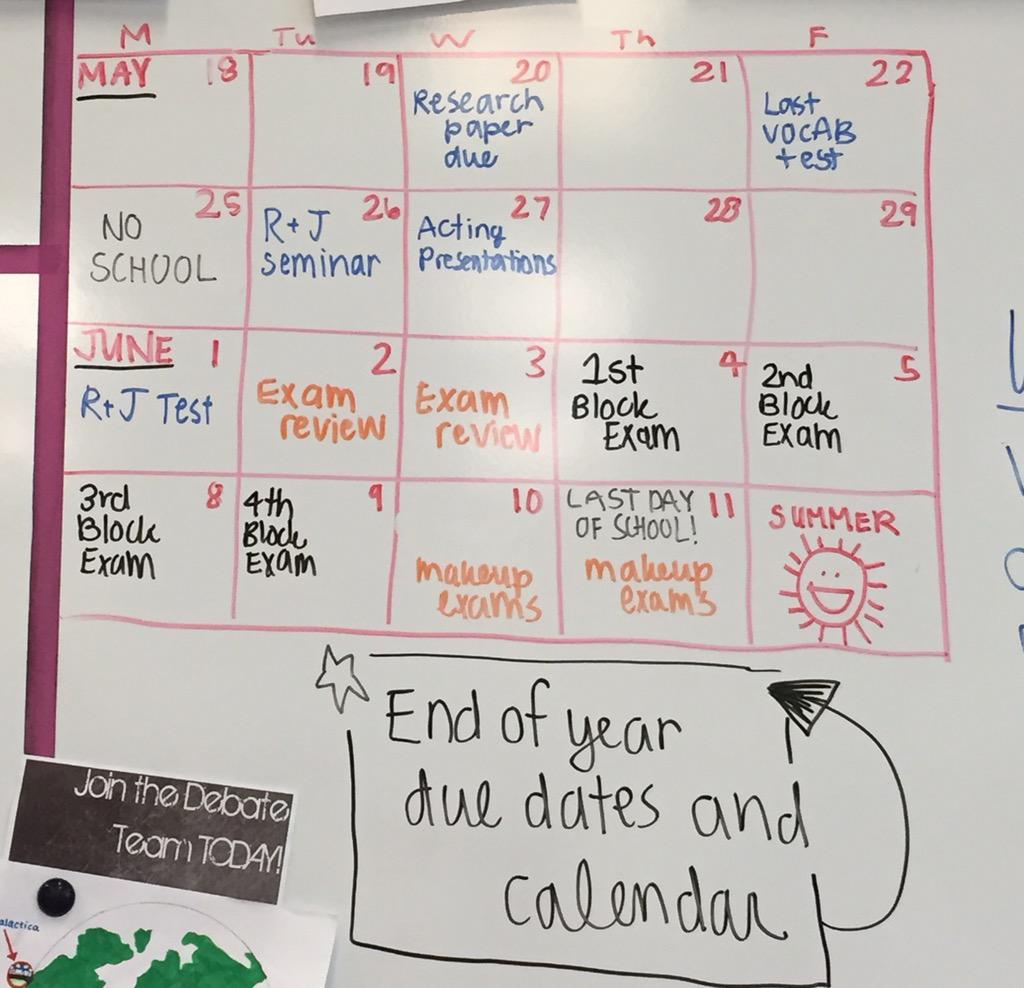 M Tu W Th F
MAY 18 19 20 21 22
Research
paper
due
Last
VOCAB
test
25 26 27 28 29
NO
SCHOOL
R+J
seminar
Acting
Presentations
JUNE 1 2 3 4 5
R+J Test
Exam
review
Exam
review
1st
Block
Exam
2nd
Block
Exam
8 9 10 11
3rd
Block
Exam
4th
Block
Exam
makeup
exams
LAST DAY
OF SCHOOL!
makeup
exams
SUMMER
End of year
due dates and
calendar
Join the Debate
Team TODAY!